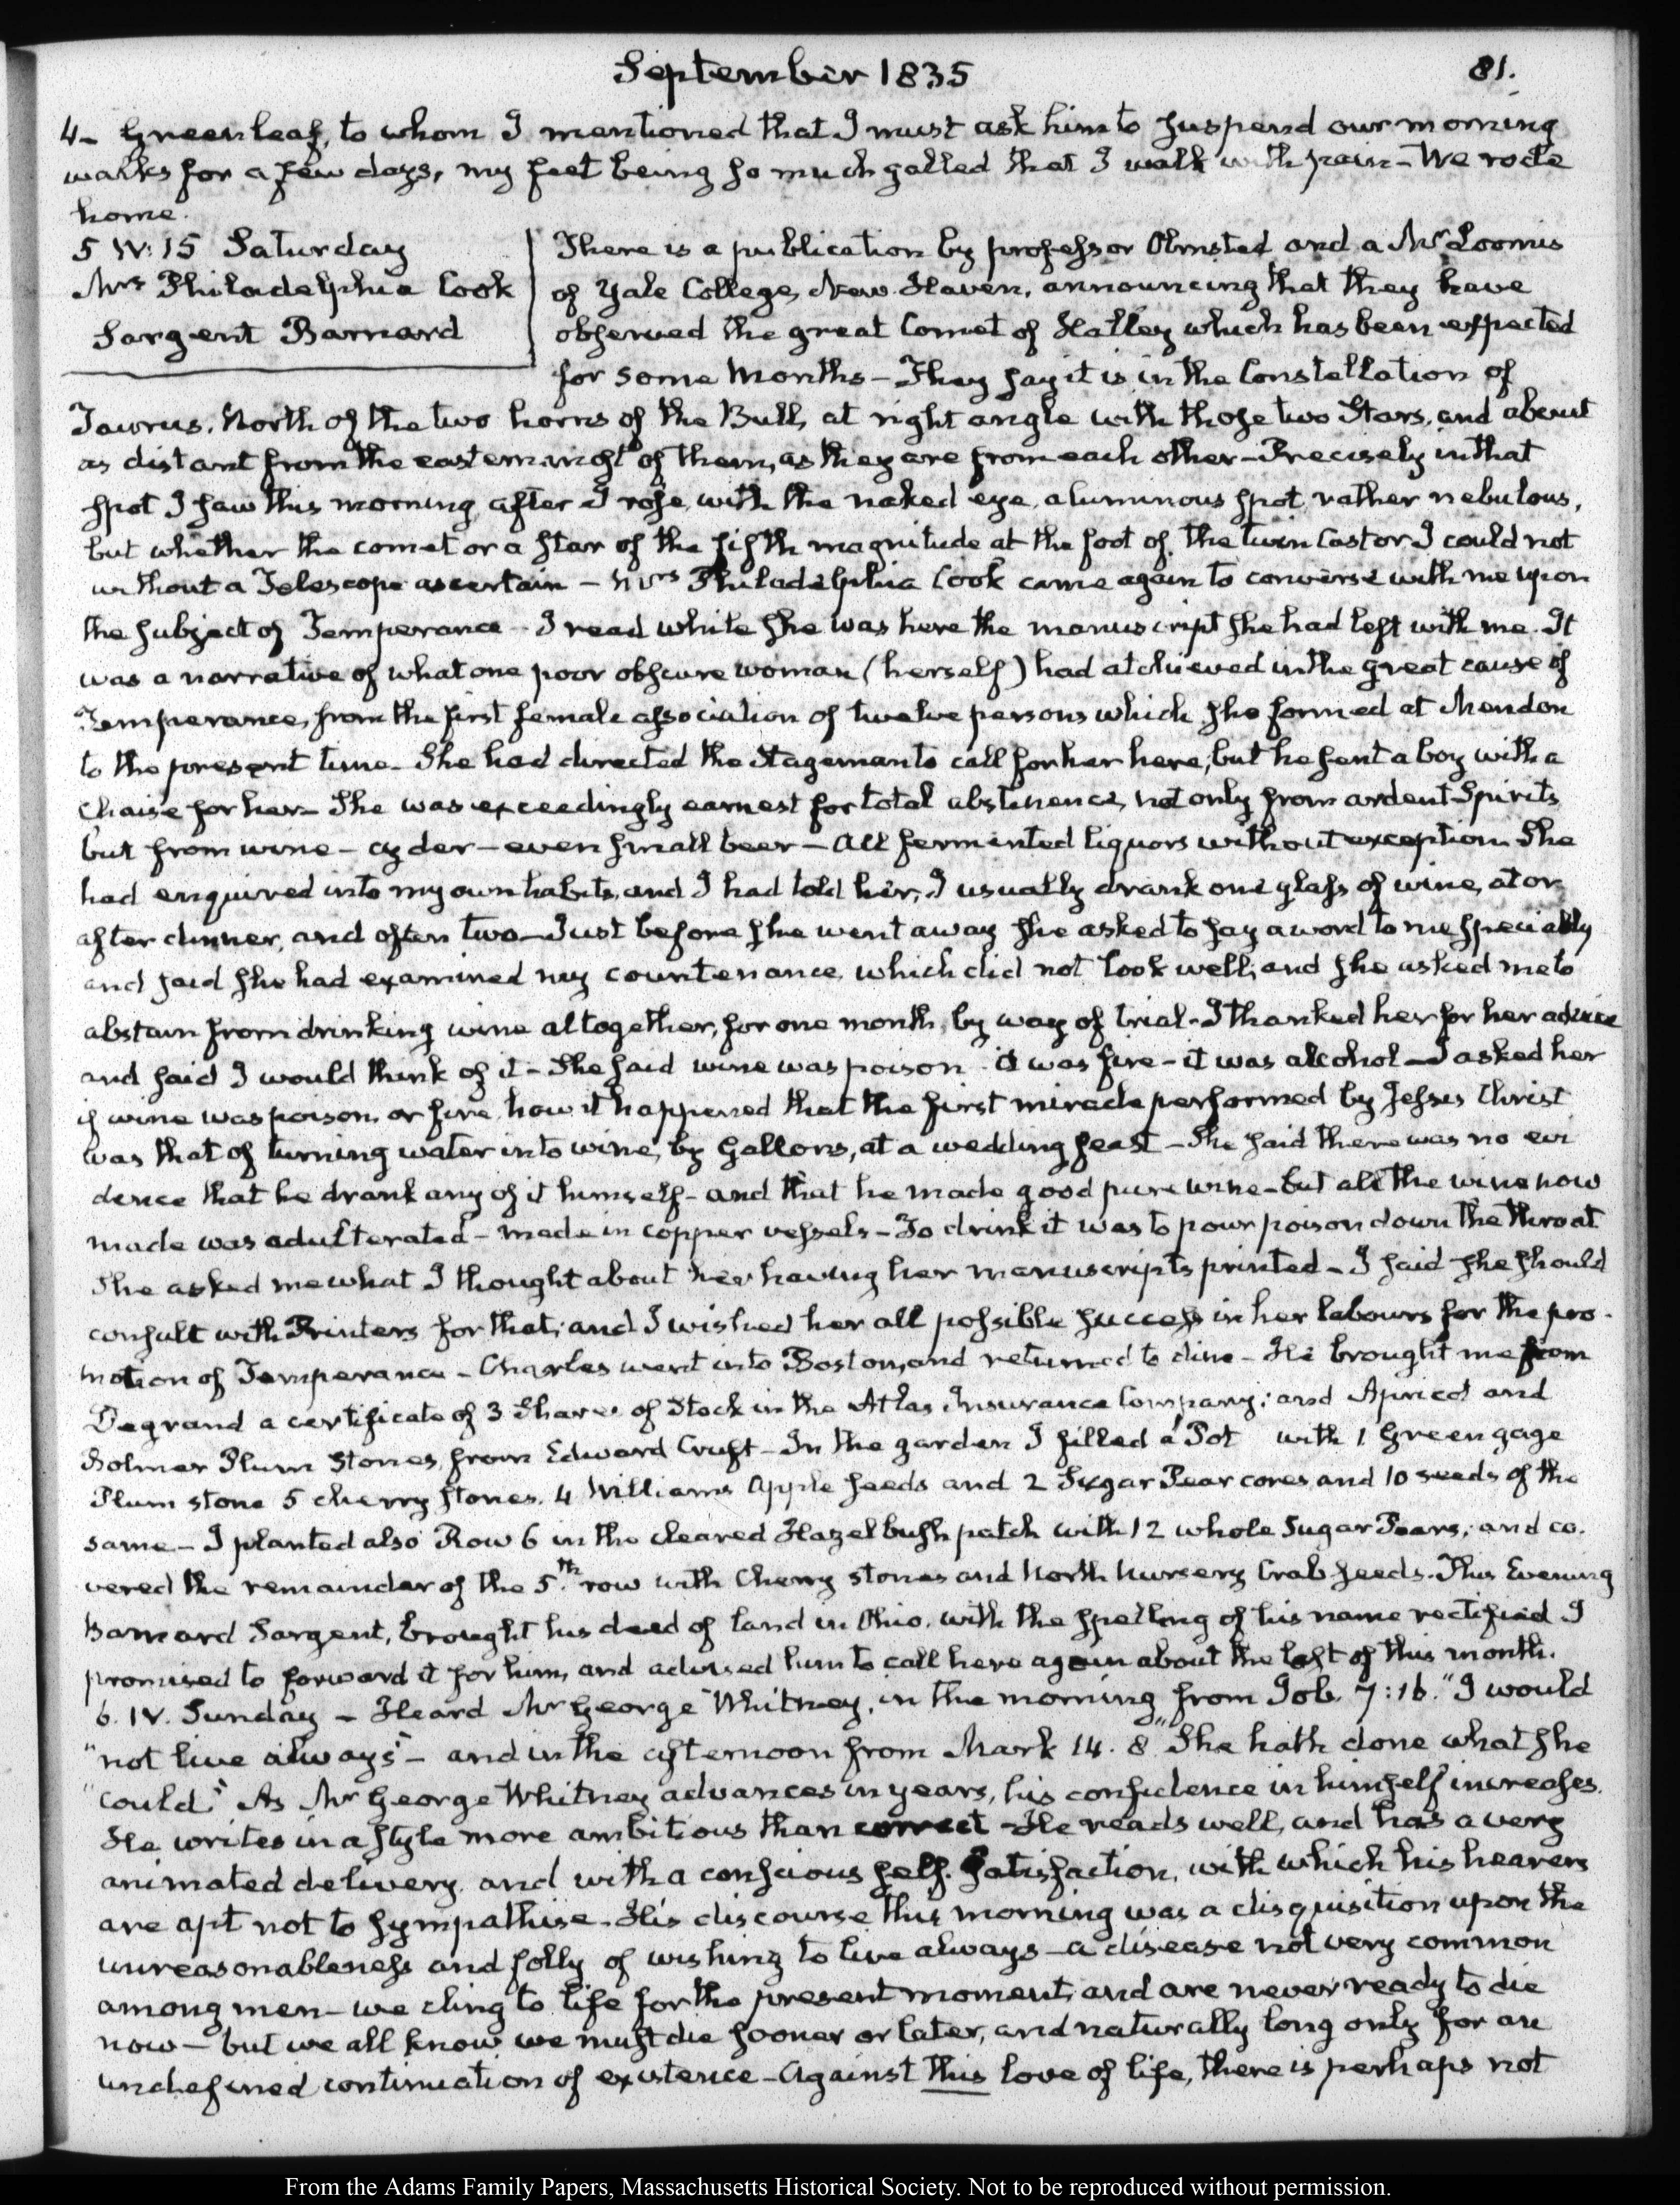 September 1835
81.
4- Greenleaf, to whom I mentioned that I must ask him to suspend our morning
walks for a few days, my feet being so much galled that I walk with pain - We rode
home.
5 IV:15 Saturday
Mrs Philadelphia Cook
Sargent Barnard
There is a publication by professor Olmsted and a Mr Loomis
of Yale College, New-Haven, announcing that they have
observed the great Comet of Halley which has been expected
for some Months - They say it is in the Constellation of
Taurus, North of the two horns of the Bull, at right angle with those two Stars, and about
as distant from the easternmost of them, as they are from each other - Precisely in that
spot I saw this morning after I rose, with the naked eye, a luminous spot rather nebulous,
but whether the comet or a star of the fifth magnitude at the foot of the twin Castor I could not
without a Telescope ascertain - Mrs Philadelphia Cook came again to converse with me upon
the subject of Temperance - I read while she was here the manuscript she had left with me. It
was a narrative of what one poor obscure woman (herself) had atchieved in the great cause of
Temperance, from the first female association of twelve persons which she formed at Mendon
to the present time - She had directed the Stageman to call for her here; but he sent a boy with a
Chaise for her - She was exceedingly earnest for total abstinence, not only from ardent Spirits
but from wine - cyder - even small beer - All fermented liquors without exception. She
had enquired into my own habits, and I had told her, I usually drank one glass of wine, at or
after dinner, and often two - Just before she went away she asked to say a word to me specially
and said she had examined my countenance, which did not look well; and she asked me to
abstain from drinking wine altogether, for one month, by way of trial - I thanked her for her advice
and said I would think of it - She said wine was poison - it was fire - it was alcohol - I asked her
if wine was poison, or fire, how it happened that the first miracle performed by Jesus Christ
was that of turning water into wine, by Gallons, at a wedding feast - She said there was no evi
dence that he drank any of it himself - and that he made good pure wine - but all the wine now
made was adulterated - made in copper vessels - To drink it was to pour poison down the throat
She asked me what I thought about her having her manuscripts printed - I said she should
consult with Printers for that; and I wished her all possible success in her labours for the pro-
motion of Temperance - Charles went into Boston, and returned to dine - He brought me from
Degrand a certificate of 3 Shares of Stock in the Atlas Insurance Company; and Apricot and
Bolmer Plum stones, from Edward Cruft - In the garden I filled a Pot with 1 Green gage
Plum stone 5 cherry stones, 4 Williams Apple seeds and 2 Sugar Pear cores and 10 seeds of the
same - I planted also Row 6 in the cleared Hazelbush patch with 12 whole Sugar Pears; and co-
vered the remainder of the 5.th row with Cherry stones and North Nursery Crab seeds. This Evening
Barnard Sargent, brought his deed of land in Ohio, with the spelling of his name rectified I
promised to forward it for him, and advised him to call here again about the last of this month.
6. IV. Sunday - Heard Mr George Whitney, in the morning from Job. 7:16. "I would
"not live always" - and in the afternoon from Mark 14. 8 "She hath done what she
"could." As Mr George Whitney advances in years, his confidence in himself increases.
He writes in a style more ambitious than correct - He reads well, and has a very
animated delivery, and with a conscious self-satisfaction, with which his hearers
are apt not to sympathise - His discourse this morning was a disquisition upon the
unreasonableness and folly of wishing to live always - a disease not very common
among men - we cling to life for the present moment, and are never ready to die
now - but we all know we must die sooner or later, and naturally long only for an
undefined continuation of existence - Against this love of life, there is perhaps not
From the Adams Family Papers, Massachusetts Historical Society. Not to be reproduced without permission.